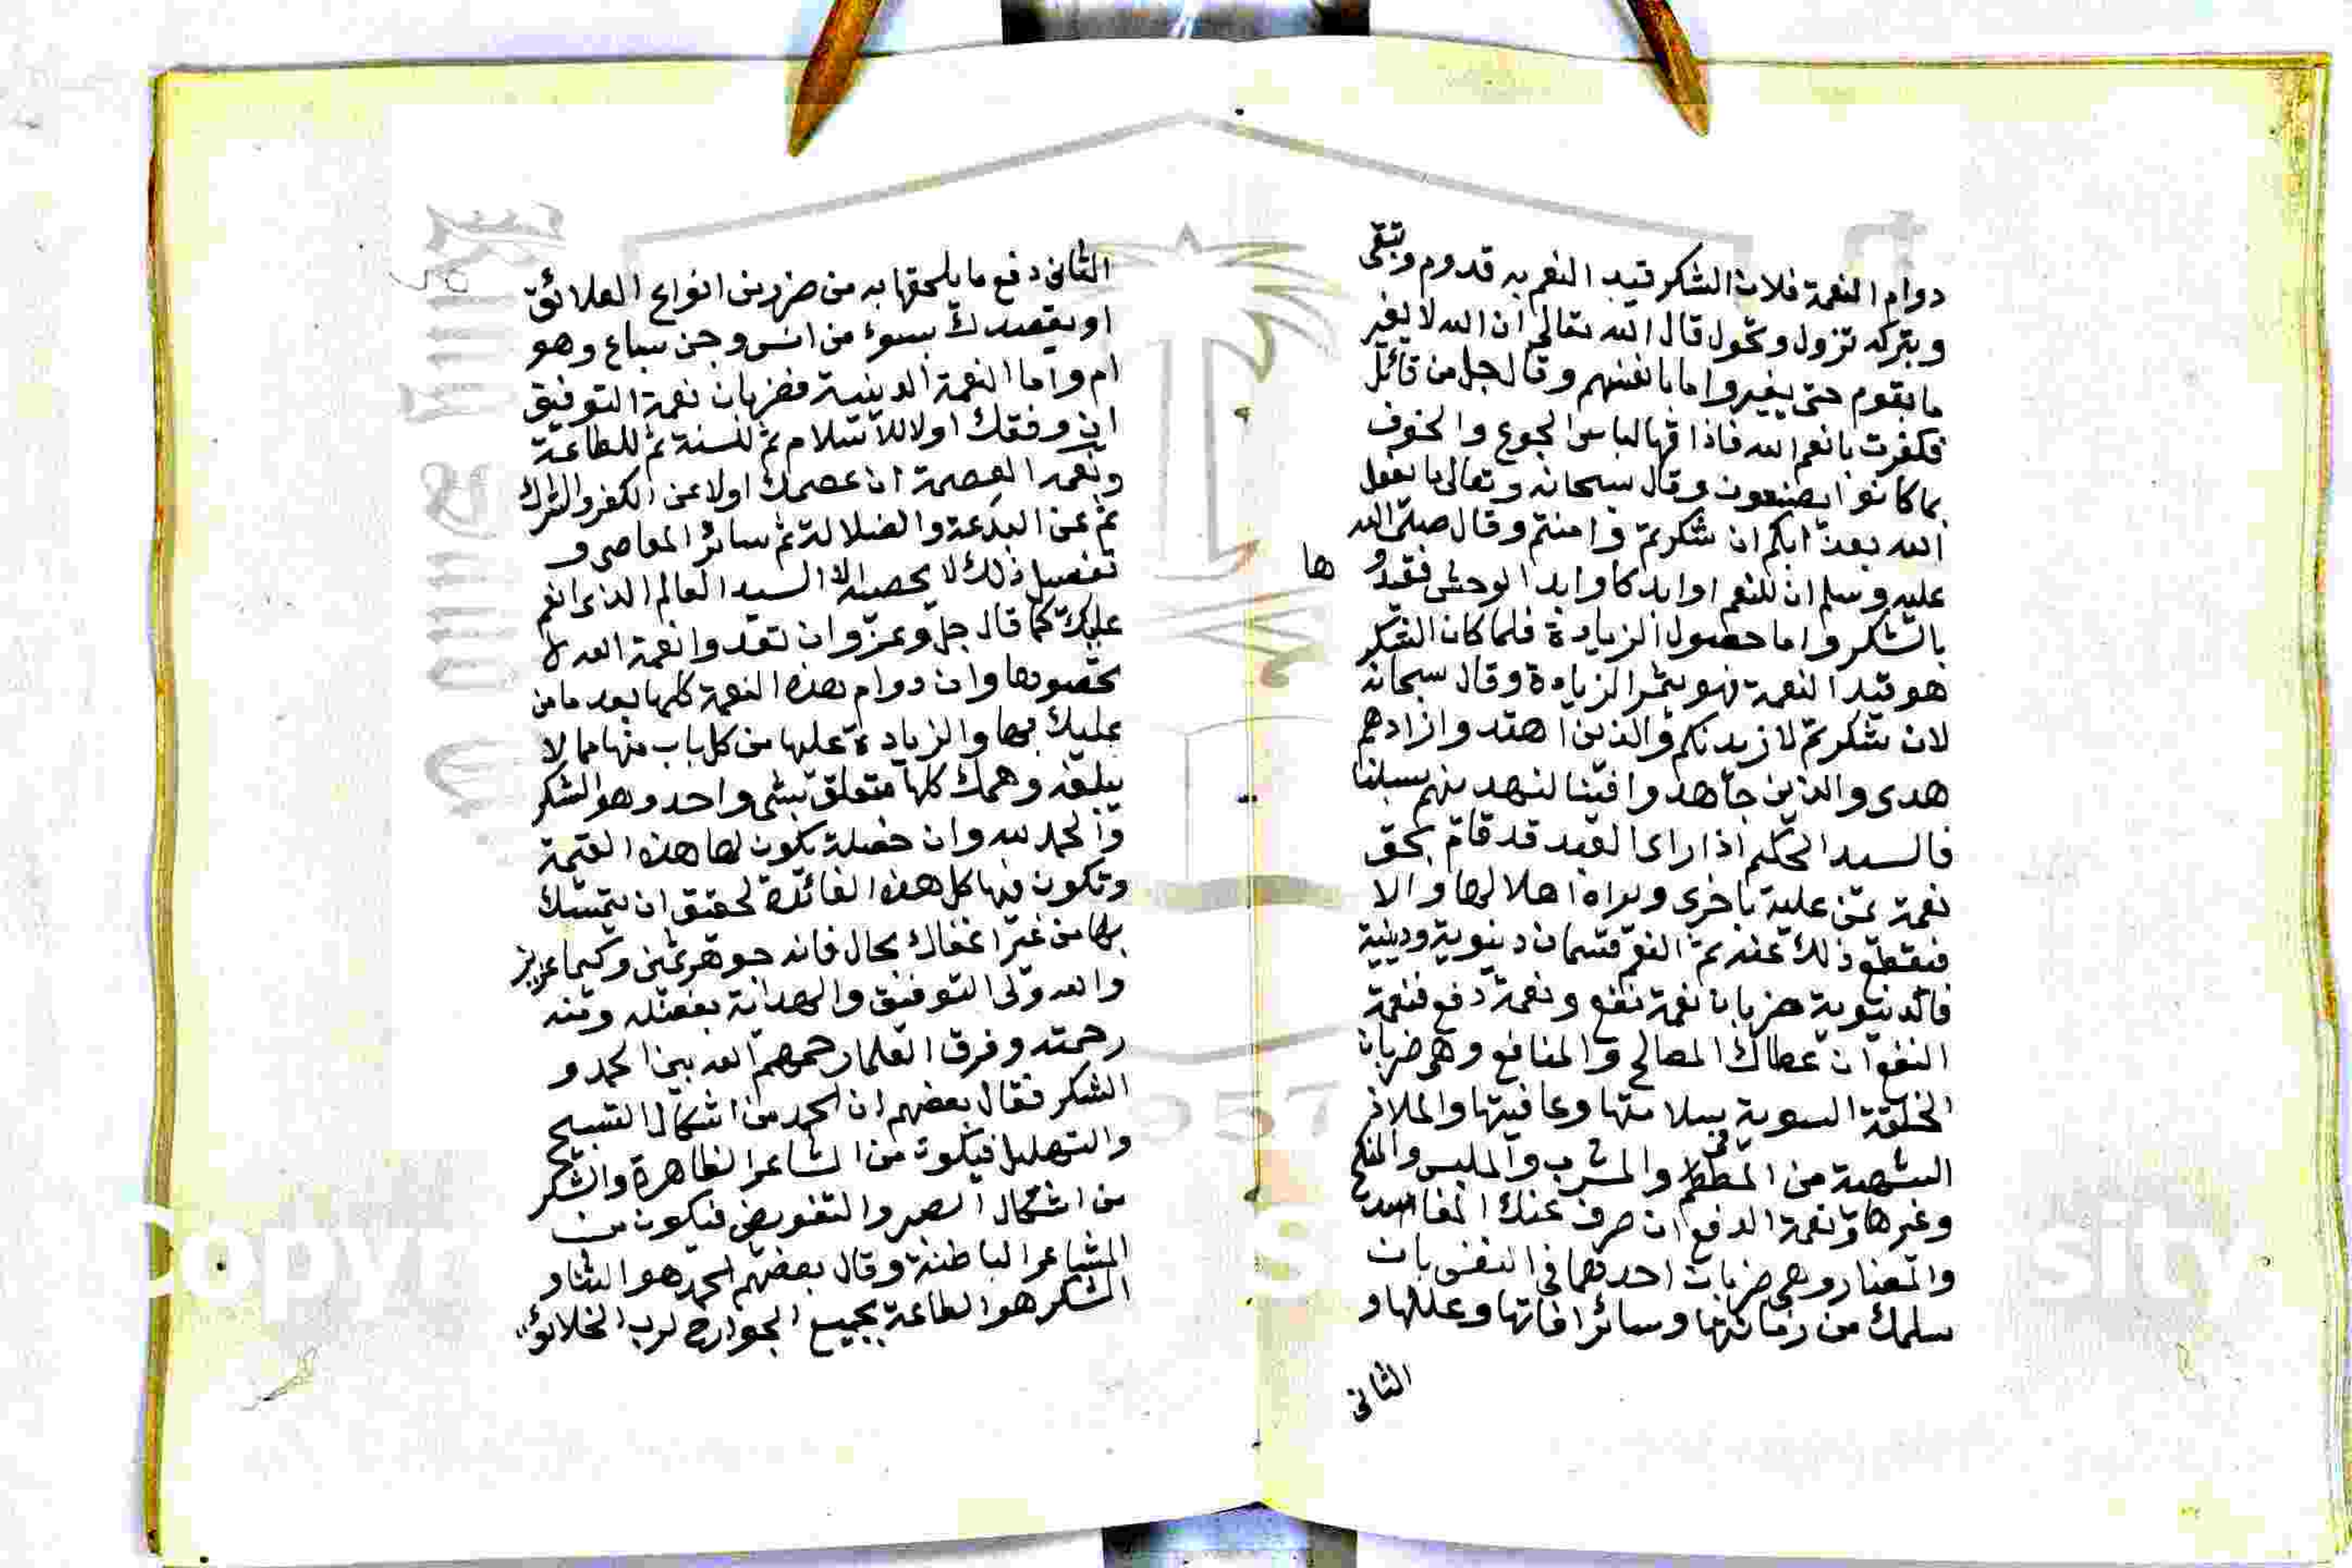 دوام النعمة فلان الشكر قيد النعم به قدوم وتبقى
وبتركه تزول وتحول قال الله تعالى ان الله لا يغير
ما بقوم حتى يغيروا ما بانفسهم وقال جل من قائل
فكفرت بانعم الله فاذاقها لباس الجوع والخوف
بما كانوا يصنعون وقال سبحانه وتعالى ما يفعل
الله بعذابكم ان شكرتم وامنتم وقال صلى الله
عليه وسلم ان للنعم اوابد كاوابد الوحش فقيدوها
بالشكر واما حصول الزيادة فلما كان الشكر
هو قيد النعمة فهو يثمر الزيادة وقال سبحانه
لان شكرتم لازيدنكم والذين اهتدوا زادهم
هدى والذين جاهدوا فينا لنهدينهم سبلنا
فالسيد الحكيم اذا راى العبد قد قام بحق
نعمة يمن عليه باخرى ويراه اهلا لها والا
فيقطع ذلك عنه ثم النعم قسمان دنيوية ودينية
فالدنيوية ضربان نعمة نفع ونعمة دفع فنعمة
النفع ان عطاك المصالح والمنافع وهى ضربان
الخلقة السوية بسلامتها وعافيتها والملاذ
الشهية من المطعم والمشرب والملبس والمنكح
وغيرها ونعمة الدفع ان صرف عنك المفاسد
والمضار وهى ضربان احدهما فى النفس بان
سلمك من زمانتها وسائر افاتها وعللها و
الثانى
الثانى دفع ما يلحقها به من ضرر من انواع العلائق
او يقصدك بسوء من انس وجن سباع وهو
ام واما النعمة الدينية فضربان نعمة التوفيق
ان وفقك اولا للاسلام ثم للسنة ثم للطاعة
ونعمة العصمة ان عصمك اولا عن الكفر والشرك
ثم عن البدعة والضلالة ثم سائر المعاصى و
تفصيل ذلك لا يحصيه الا السيد العالم الذى انعم
عليك كما قال جل وعز وان تعدوا نعمة الله لا
تحصوها وان دوام هذه النعمة كلها بعد ما من
عليك بها والزيادة عليها من كل باب منها مما لا
يبلغه وهمك كلها متعلق بشى واحد وهو الشكر
والحمد لله وان خصلة يكون لها هذه القيمة
وتكون فيها كل هذه الفائدة لحقيق ان يتمسك
بها من غير اغفاك بحال فانه جوهر ثمن وكيما عزيز
والله ولى التوفيق والهداية بفضله ومنه
رحمته وفرق العلما رحمهم الله بين الحمد و
الشكر فقال بعضهم ان الحمد من اشكال التسبيح
والتهليل فيكون من المشاعر الظاهرة والشكر
من اشكال الصبر والتفويض فيكون من
المشاعر الباطنة وقال بعضهم الحمد هو الثنا و
الشكر هو الطاعة بجميع الجوارح لرب الخلائق